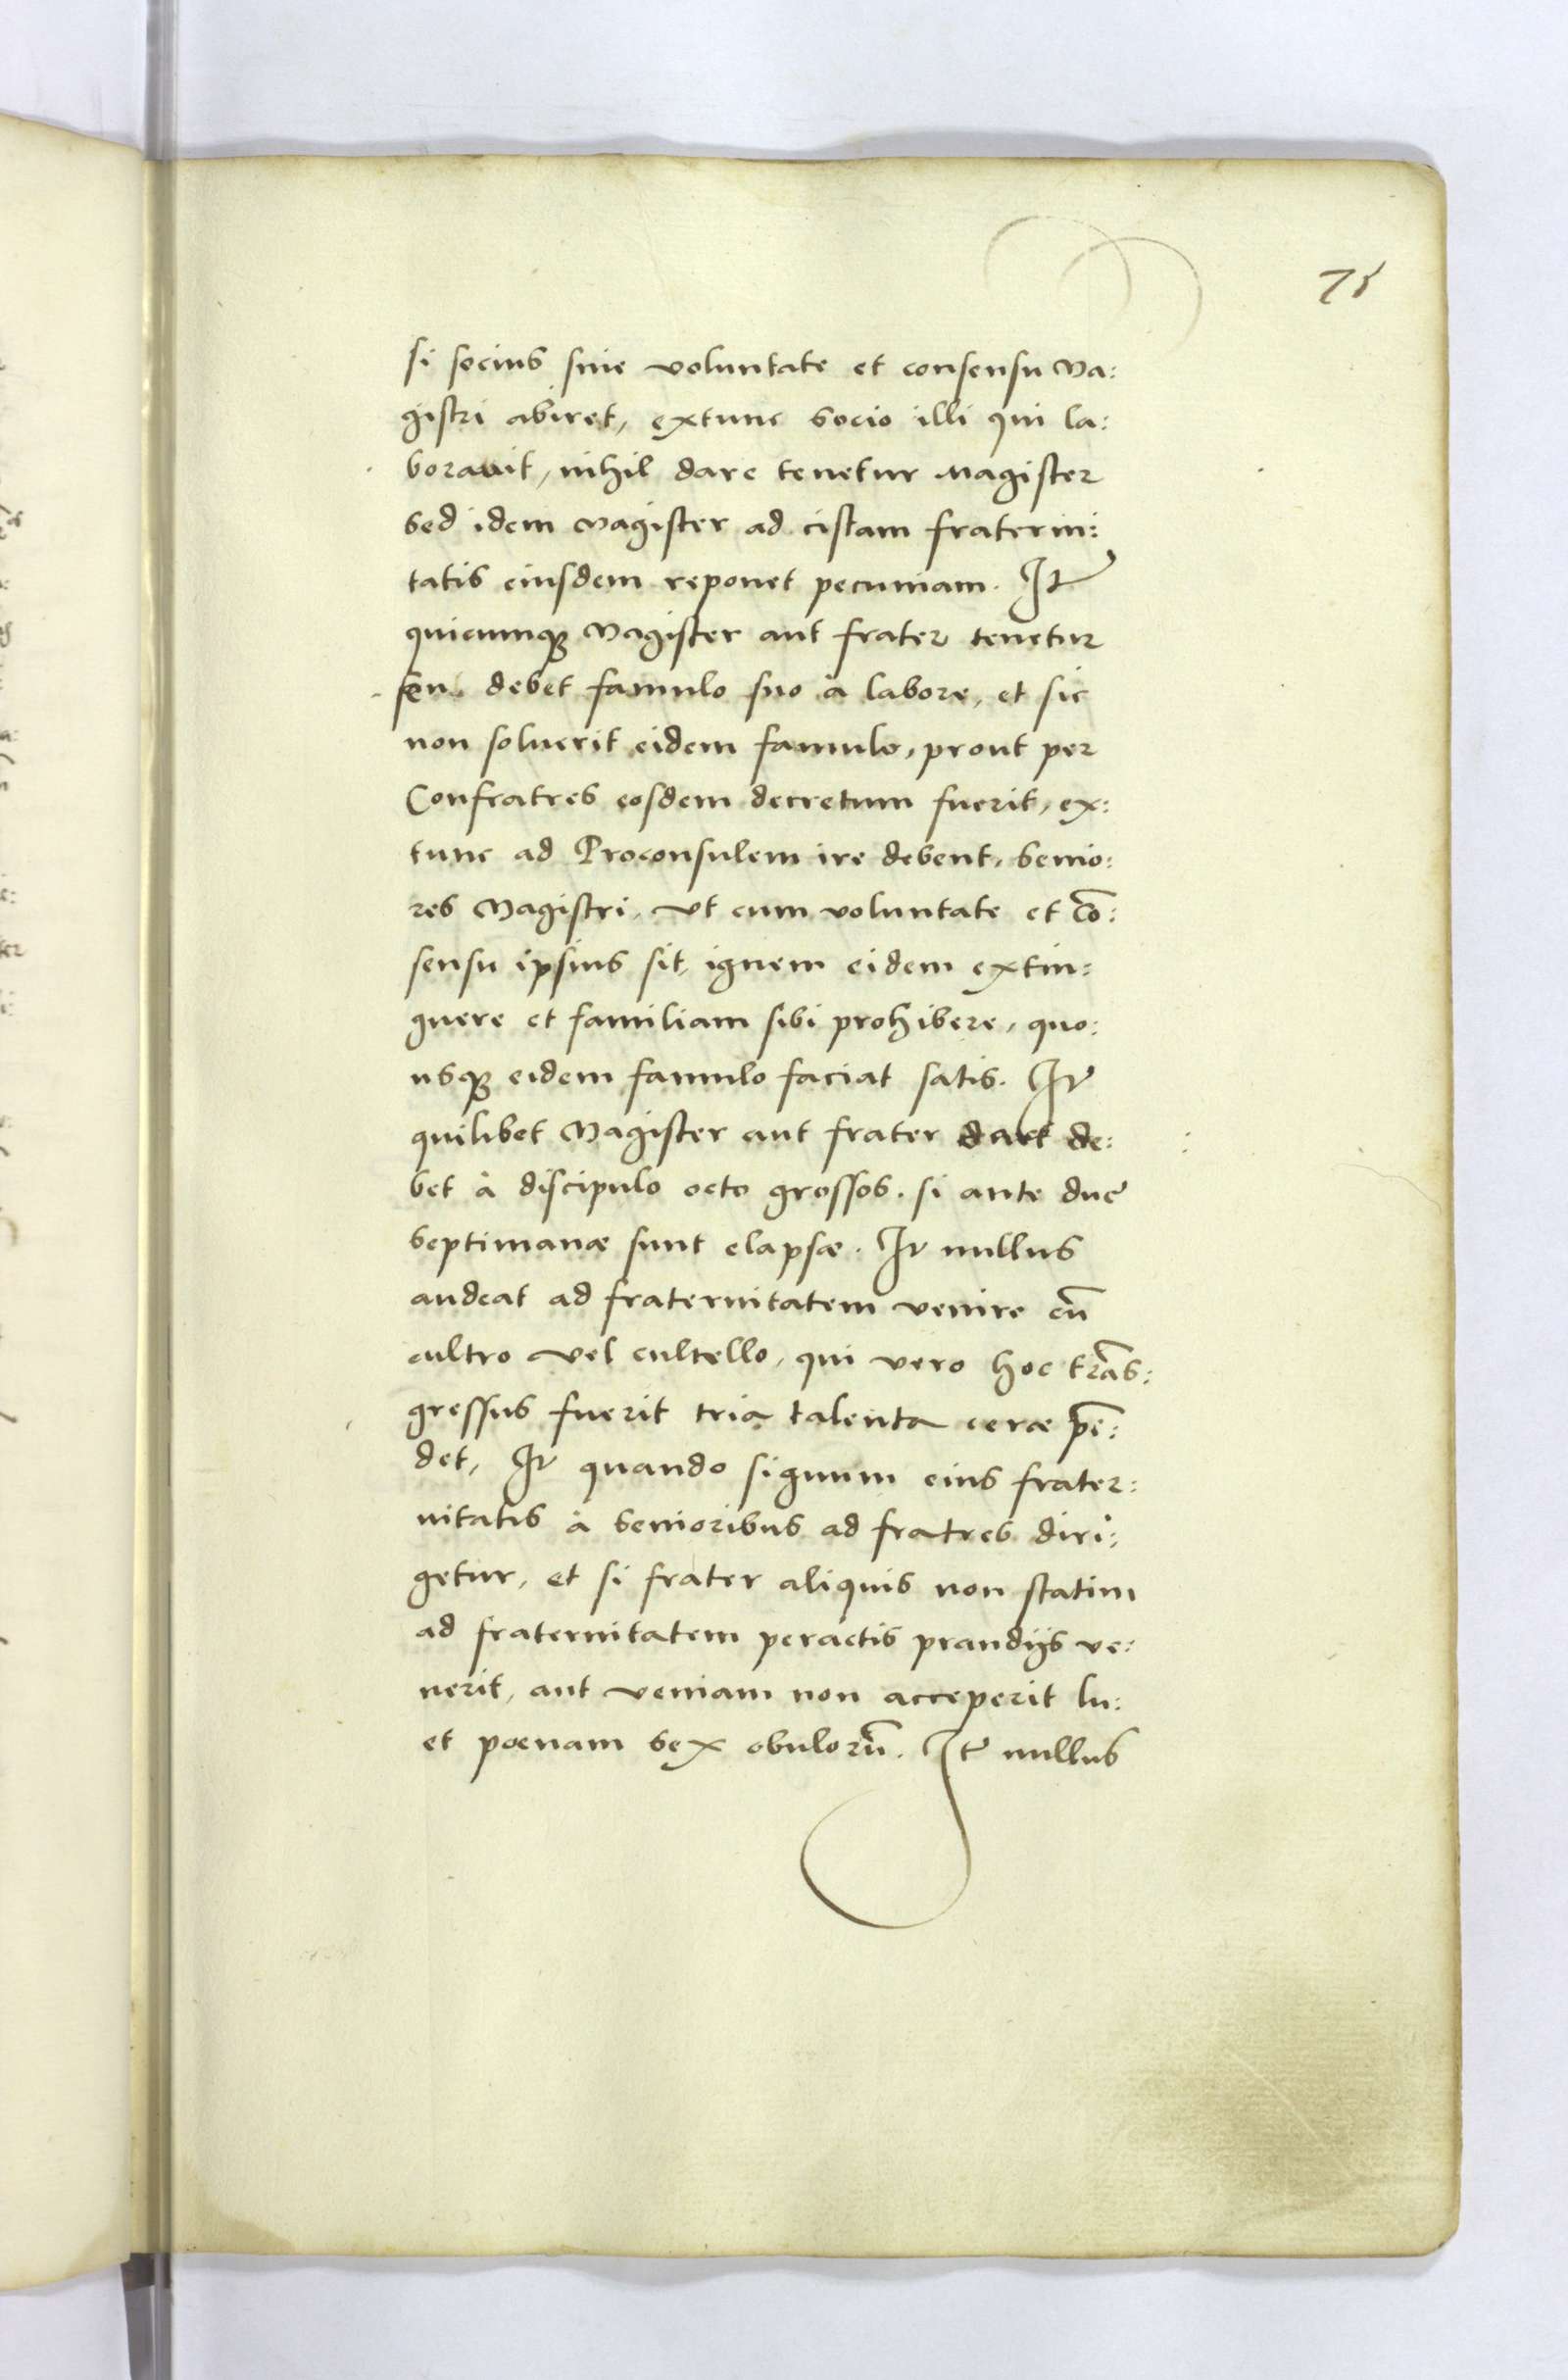 75
si socius sine voluntate et consensu Ma:
gistri abiret, extunc socio illi qui la:
borauit, nihil dare tenetur Magister
sed idem Magister ad cistam fraterni:
tatis eiusdem reponet pecuniam. It̃
quicumqꝫ Magister aut frater tenetur
seu debet famulo suo à labore, et sic
non soluerit eidem famulo, prout per
Confratres eosdem decretum fuerit, ex:
tunc ad Proconsulem ire debent, senio:
res Magistri, vt cum voluntate et cõ:
sensu ipsius sit, ignem eidem extin:
guere et familiam sibi prohibere, quo:
usqꝫ eidem famulo faciat satis. It̃
quilibet Magister aut frater dare de:
bet à discipulo octo grossos. si ante due
septimanæ sunt elapsæ. It̃ nullus
audeat ad fraternitatem venire cũ
cultro vel cultello, qui vero hoc trãs:
gressus fuerit tria talenta ceræ pẽ:
det, It̃ quando signum eius frater:
nitatis à senioribus ad fratres diri:
getur, et si frater aliquis non statim
ad fraternitatem peractis prandijs ve:
nerit, aut veniam non acceperit lu:
et poenam sex obulorũ. It̃ nullus